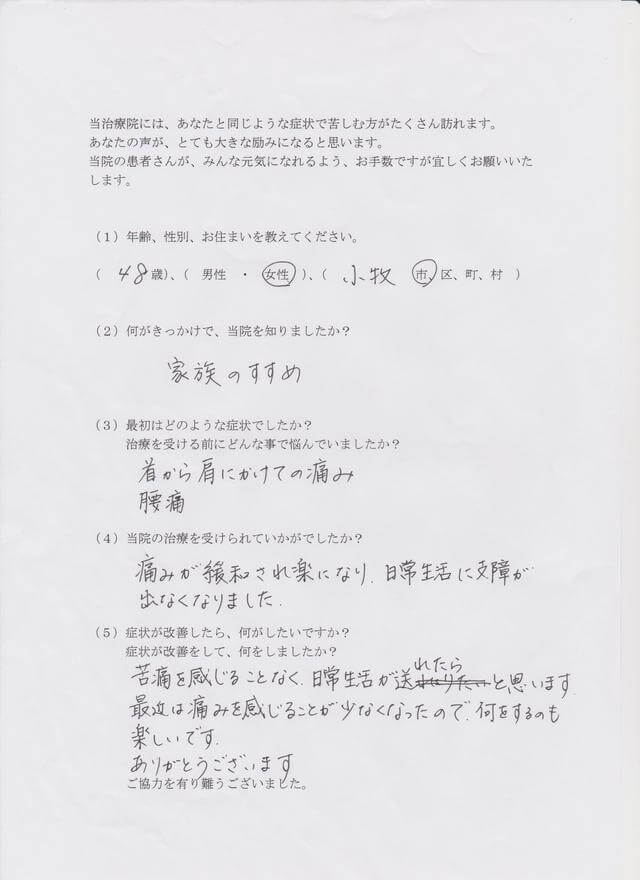 当治療院には、あなたと同じような症状で苦しむ方がたくさん訪れます。
あなたの声が、とても大きな励みになると思います。
当院の患者さんが、みんな元気になれるよう、お手数ですが宜しくお願いいた
します。
（１）年齢、性別、お住まいを教えてください。
（ 48歳）、（ 男性 ・ 女性 ）、（ 小牧 市、区、町、村 ）
（２）何がきっかけで、当院を知りましたか？
家族のすすめ
（３）最初はどのような症状でしたか？
治療を受ける前にどんな事で悩んでいましたか？
首から肩にかけての痛み
腰痛
（４）当院の治療を受けられていかがでしたか？
痛みが緩和され楽になり、日常生活に支障が
出なくなりました。
（５）症状が改善したら、何がしたいですか？
症状が改善をして、何をしましたか？
苦痛を感じることなく、日常生活が送れたらと思います
最近は痛みを感じることが少なくなったので、何をするのも
楽しいです。
ありがとうございます
ご協力を有り難うございました。